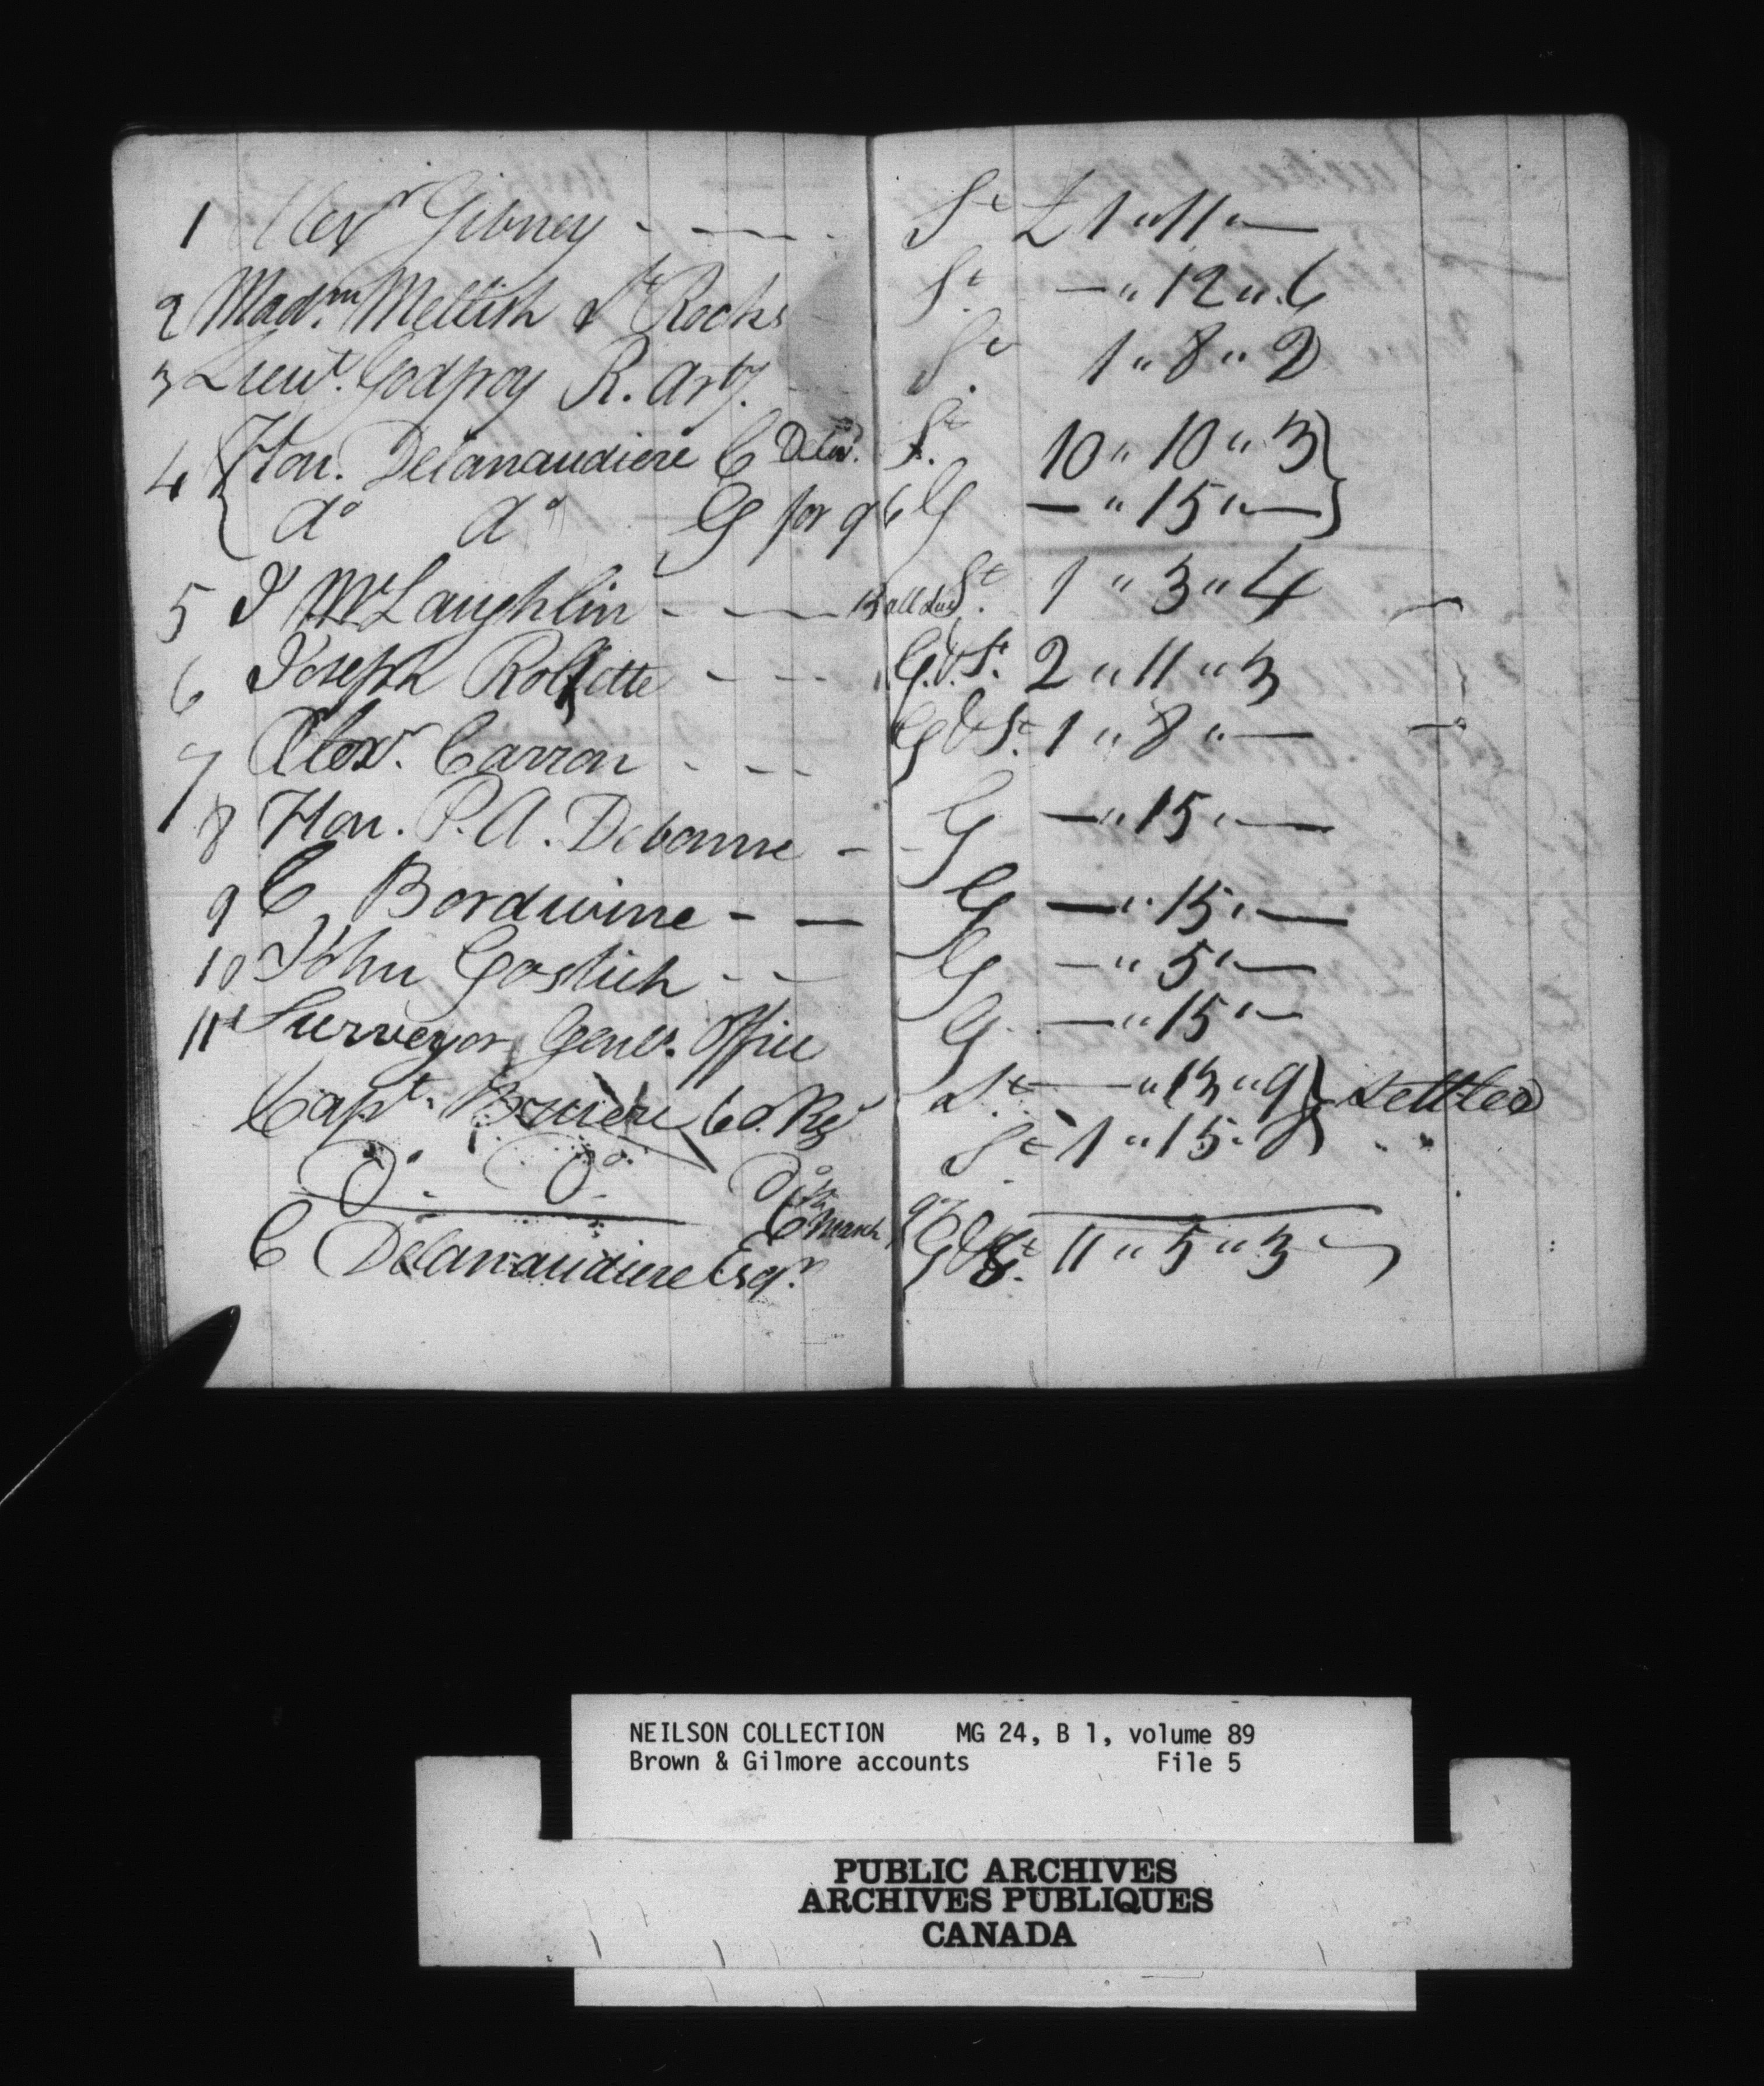 1 Alexr Gibney - — - St £ 1 " 11 " —
2 Madm. Mellish St Rochs St — " 12 " 6
3 Lieut. Godfroy R. Arty. St. 1 " 8 " 2
4 { Hon. Delanaudiere C St. 10 " 10 " 3 }
do do G for 96 G — " 15 " — }
5 J McLaughlin - - — Ball due St. 1 " 3 " 4
6 Joseph Rollette - - - G. & St. 2 " 11 " 3
7 Alexr. Carron - - - G & St. 1 " 8 " —
8 Hon. P. A. Debonne - - G — " 15 " —
9 C Bordwine - — G — " 15 " —
10 John Goslich - - G — " 5 " —
11 Surveyor Genls. Office G — " 15 " —
Capt. Bruiere 60. Rg St. — " 13 " 9 } settled
Do. Do. Do St 1 " 15 "
6th March 97
C Delanaudiere Esqr. G & St. 11 " 5 " 3
NEILSON COLLECTION MG 24, B 1, volume 89
Brown & Gilmore accounts File 5
PUBLIC ARCHIVES
ARCHIVES PUBLIQUES
CANADA